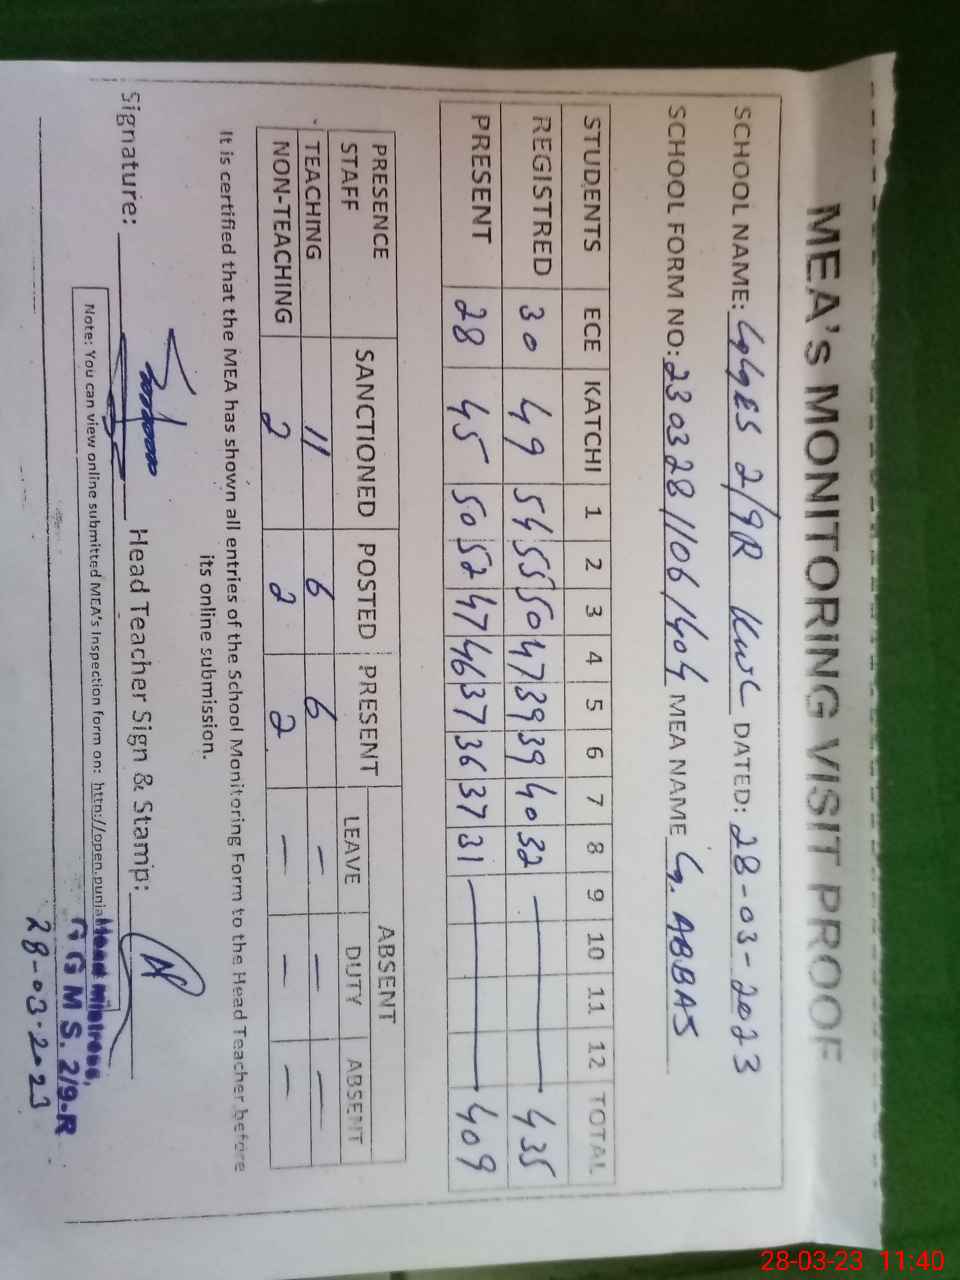 MEA's MONITORING VISIT PROOF
SCHOOL NAME: GGES 2/9R KWL DATED: 28-03-2023
SCHOOL FORM NO: 230328/1106/404 MEA NAME G. ABBAS
STUDENTS ECE KATCHI 1 2 3 4 5 6 7 8 9 10 11 12 TOTAL
REGISTRED 30 49 54 55 50 47 39 39 40 32 — 435
PRESENT 28 45 50 52 47 46 37 36 37 31 — 409
PRESENCE STAFF SANCTIONED POSTED PRESENT ABSENT
LEAVE DUTY ABSENT
TEACHING 11 6 6 — — —
NON-TEACHING 2 2 2 — — —
It is certified that the MEA has shown all entries of the School Monitoring Form to the Head Teacher before
its online submission.
Signature: Head Teacher Sign & Stamp:
Note: You can view online submitted MEA's Inspection form on: http://open.punja
Head Mistress,
G G M S. 2/9-R
28-03-2023
28-03-23 11:40